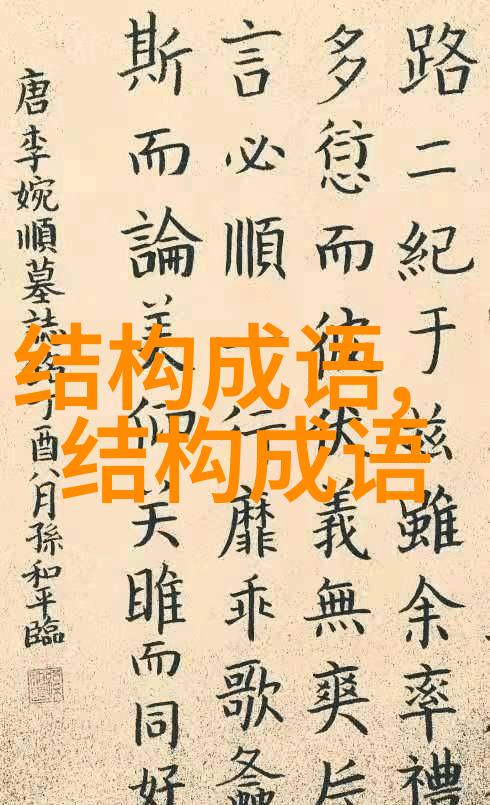 结构成语,
结构成语
路二紀于兹雖余率禮
多愆而義無爽
言必順行靡乖歌
斯而論美師关睢而同好
唐李婉順墓誌銘丁酉八月孫和平臨